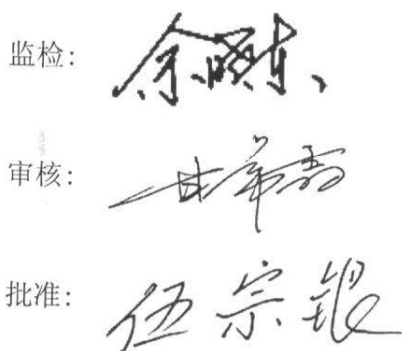 监检: 余晓东
审核:
批准: 伍宗银